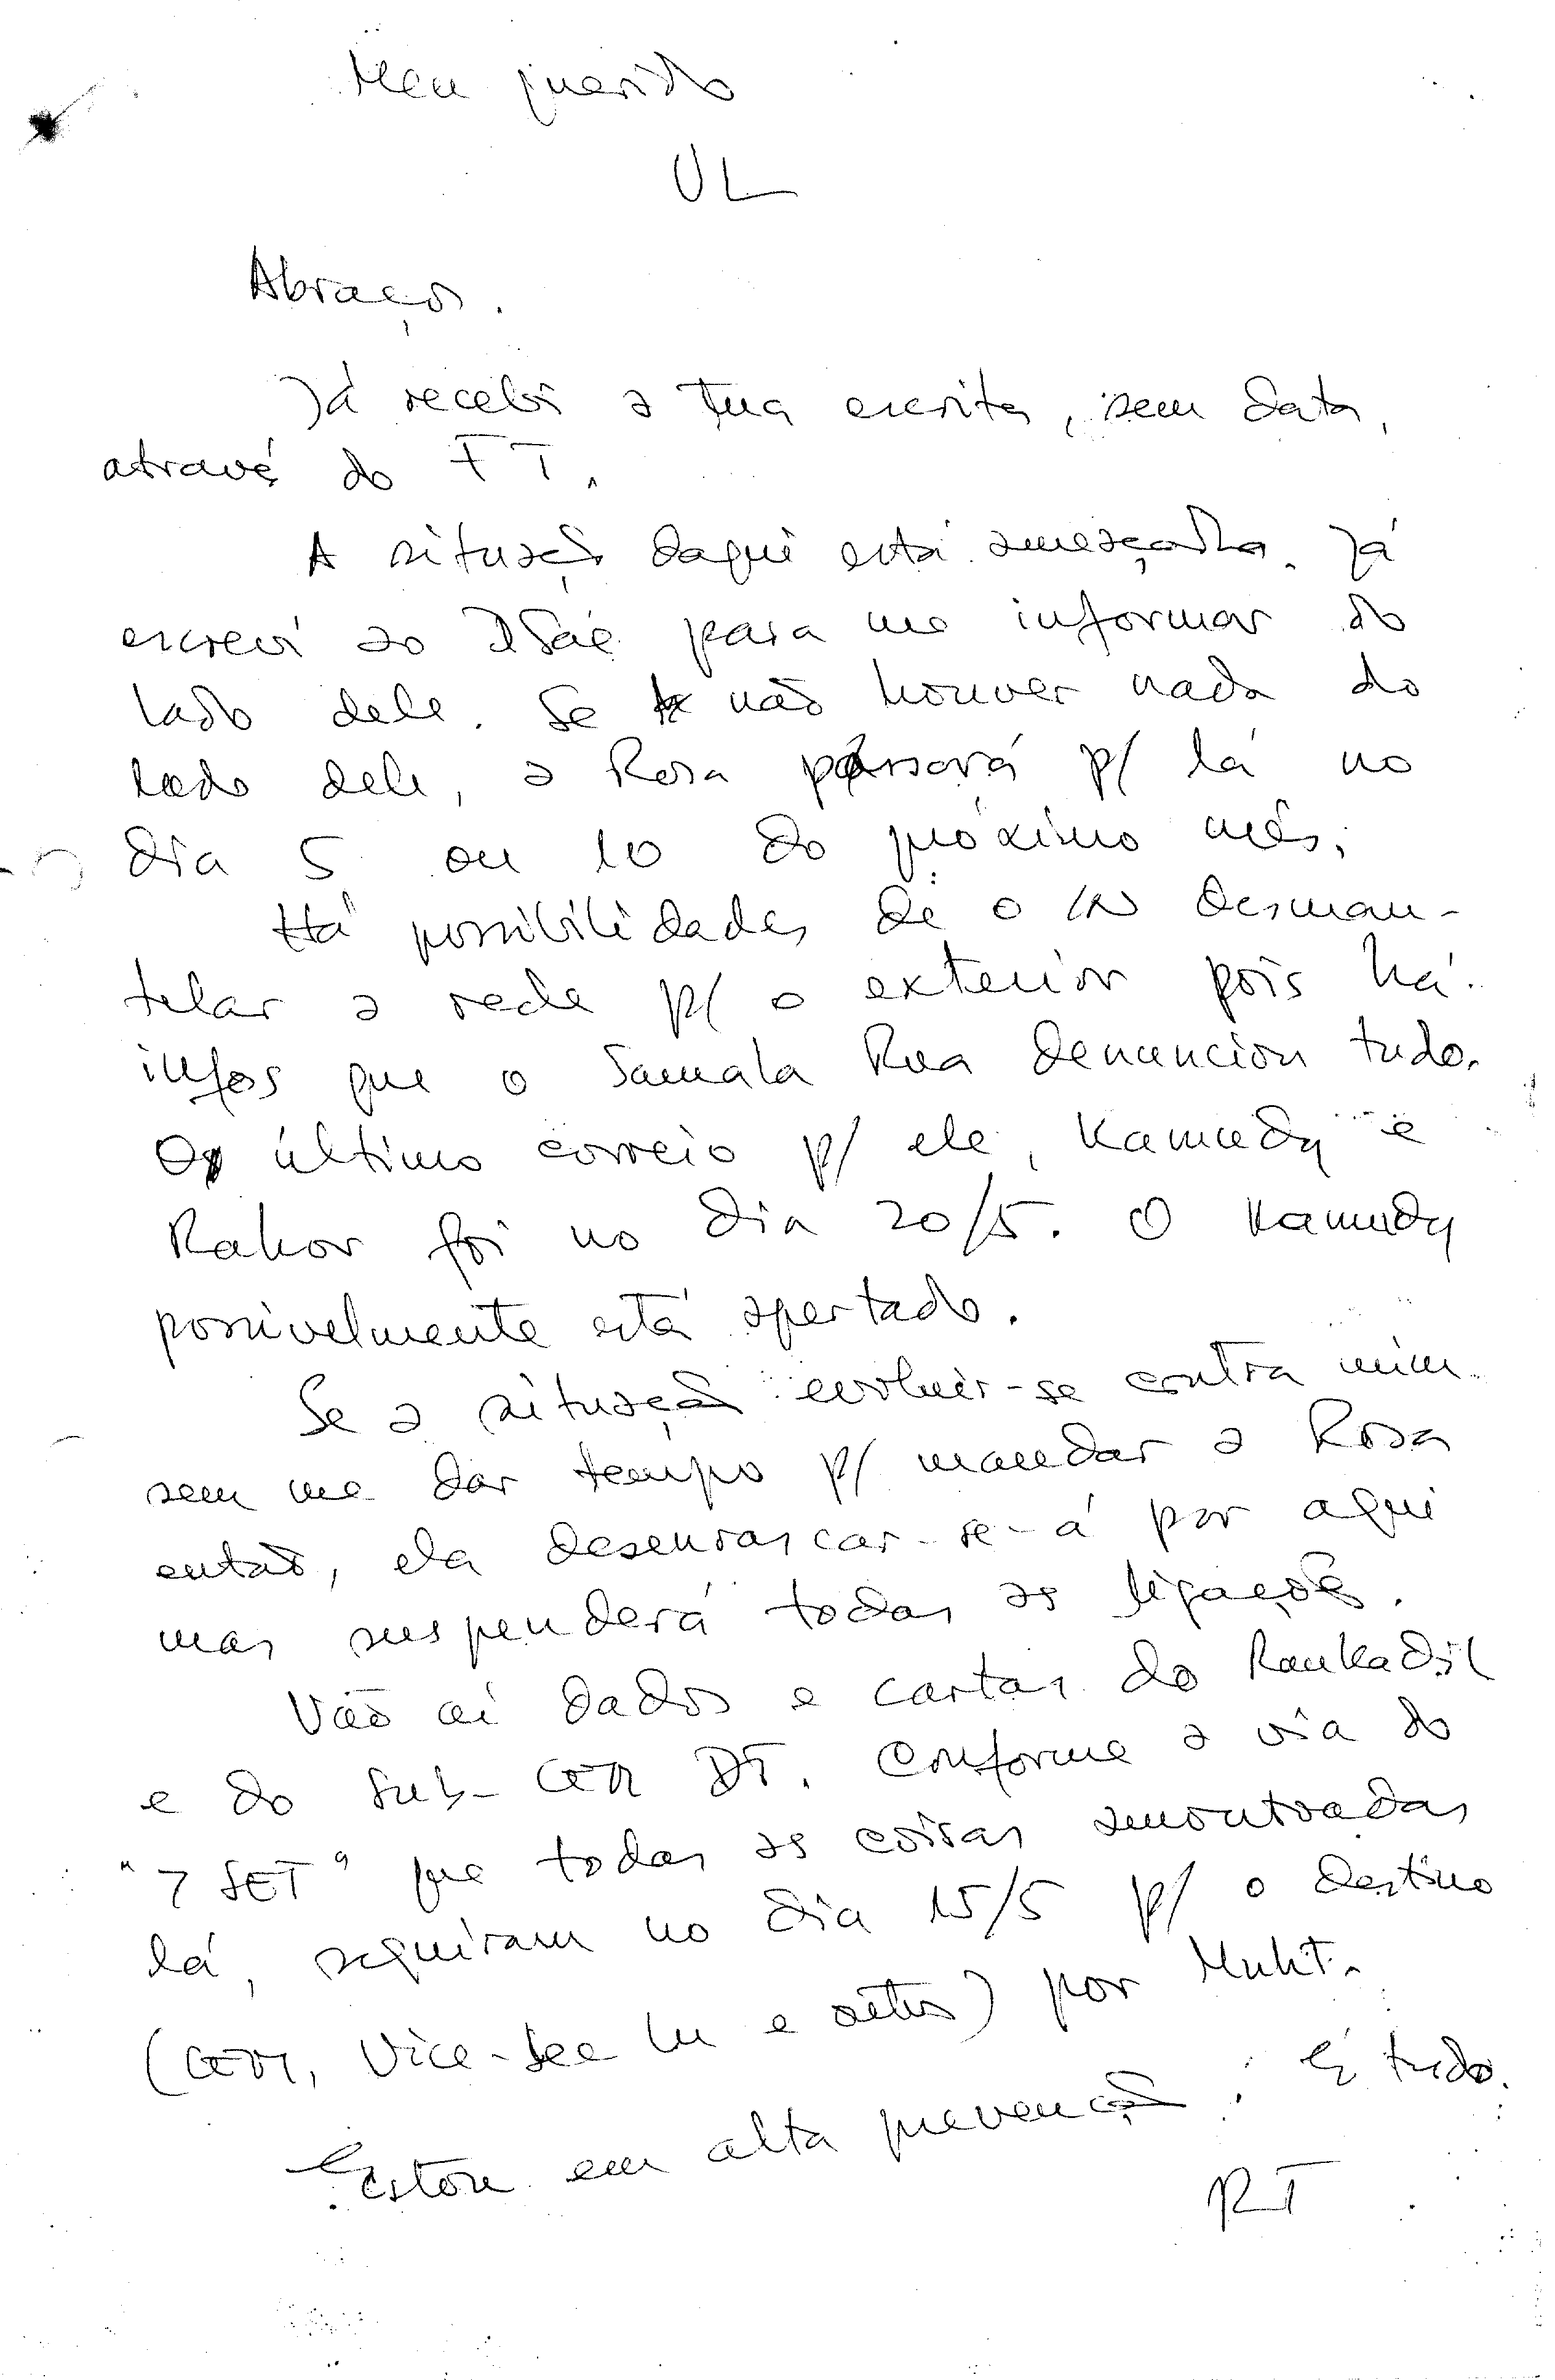 Meu querido
UL
Abraços.
Já recebi a tua escrita, sem data,
através do FT.
A situação daqui está ameaçadra. Já
escrevi ao Isaé para me informar do
lado dele. Se não houver nada do
lado dele, a Rosa passará p/ lá no
dia 5 ou 10 do próximo mês.
Há possibilidades de o IN desman-
telar a rede p/ o exterior pois há
infos que o Samala Rua denunciou tudo.
O último correio p/ ele, Kamudy e
Rakor foi no dia 20/5. O Kamudy
possivelmente está apertado.
Se a situação evoluir-se contra mim
sem me dar tempo p/ mandar a Rosa
então, ela desenrascar-se-á por aqui
mas suspenderá todas as ligações.
Vão aí dados e cartas do Rankadil
e do Sub- DT. Conforme a via do
"7 SET" que todas as coisas amontoadas
lá, seguiram no dia 15/5 p/ o destino
( Vice-Sec Lu e ) por Mukt.
Estou em alta prevenção. É tudo.
RT